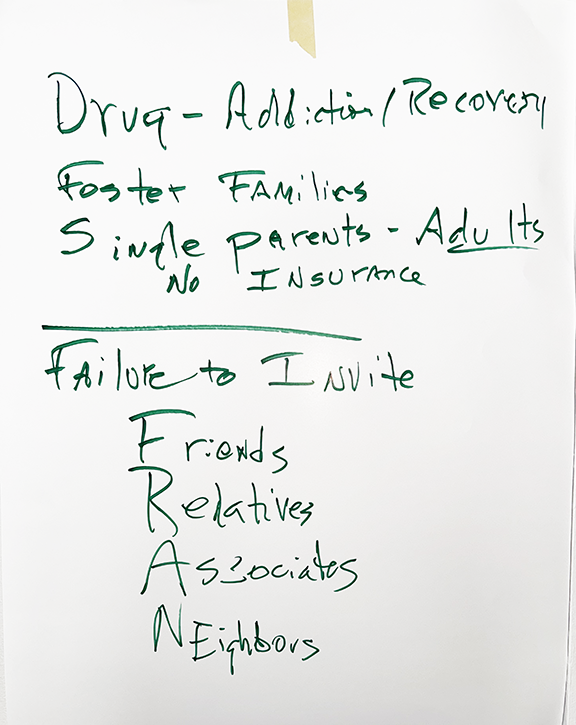 Drug - Addiction/Recovery
Foster FAMilies
Single parents - Adults
No INsurance
FAilure to INvite
Friends
Relatives
Associates
NEighbors